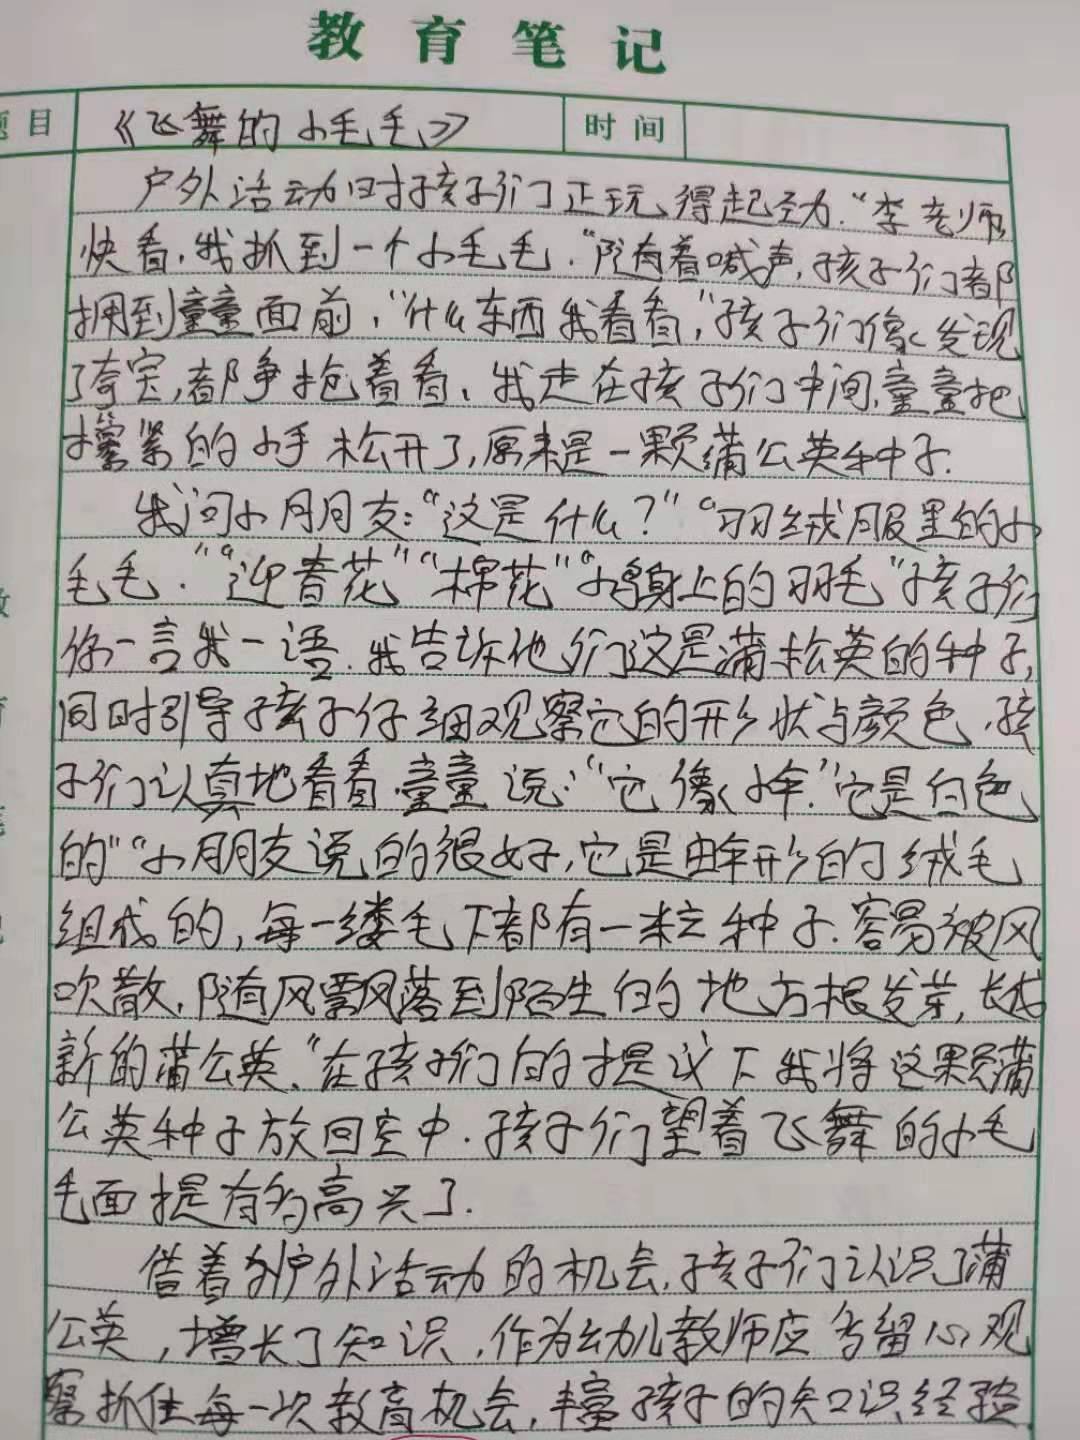 教育笔记
题目 《飞舞的小毛毛》 时间
户外活动时孩子们正玩得起劲."李老师
快看,我抓到一个小毛毛."随着喊声,孩子们都
拥到童童面前,"什么东西我看看,"孩子们像发现
了奇宝,都争抢着看、我走在孩子们中间,童童把
攥紧的小手松开了,原来是一颗蒲公英种子.
我问小朋友:"这是什么?""羽绒服里的小
毛毛.""迎春花""棉花""小鸡身上的羽毛"孩子们
你一言我一语.我告诉他们这是蒲松英的种子,
同时引导孩子仔细观察它的形状与颜色.孩
子们认真地看看.童童说:"它像小伞."它是白色
的""小朋友说的很好,它是由伞形的绒毛
组成的,每一缕毛下都有一粒种子.容易被风
吹散,随风飘落到陌生的地方根发芽,长成
新的蒲公英."在孩子们的提议下我将这颗蒲
公英种子放回空中.孩子们望着飞舞的小毛
毛面提有的高兴了.
借着户外活动的机会,孩子们认识了蒲
公英,增长了知识.作为幼儿教师应多留心观
察抓住每一次教育机会,丰富孩子的知识经验